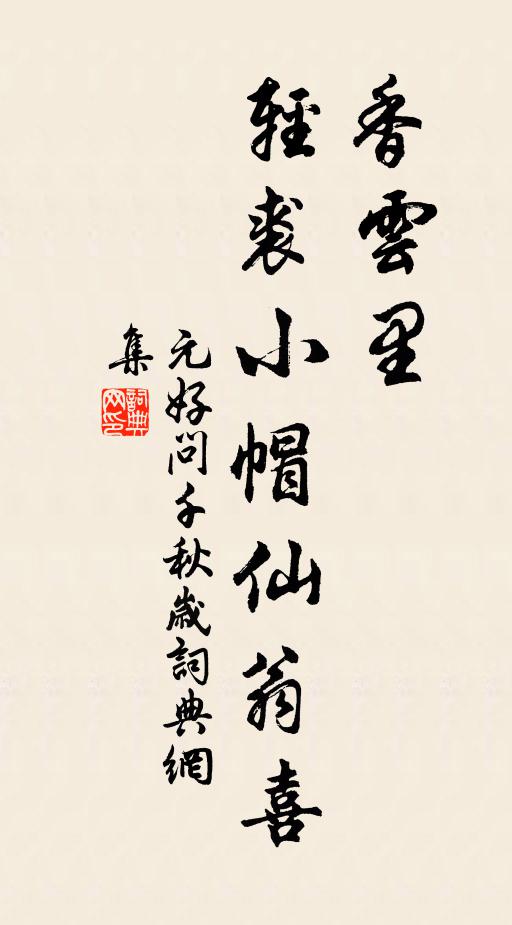 香雲里
輕裘小帽仙翁喜
元好問千秋歲詞典網
集
詞典
网印